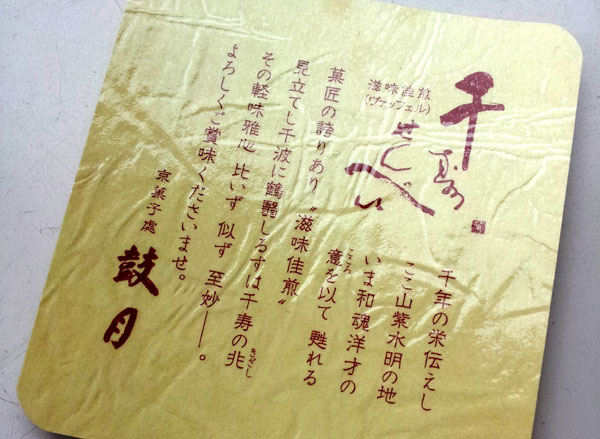 千寿せんべい
滋味佳煎
(ヴァッフェル)
千年の栄伝えし
ここ山紫水明の地
いま和魂洋才の
意を以て 甦れる
こころ
菓匠の誇りあり〝滋味佳煎〟
見立てし千波に鶴翳しるすは千寿の兆
きざし
その軽味雅心 比いず 似ず 至妙──。
よろしくご賞味くださいませ。
京菓子處
鼓月